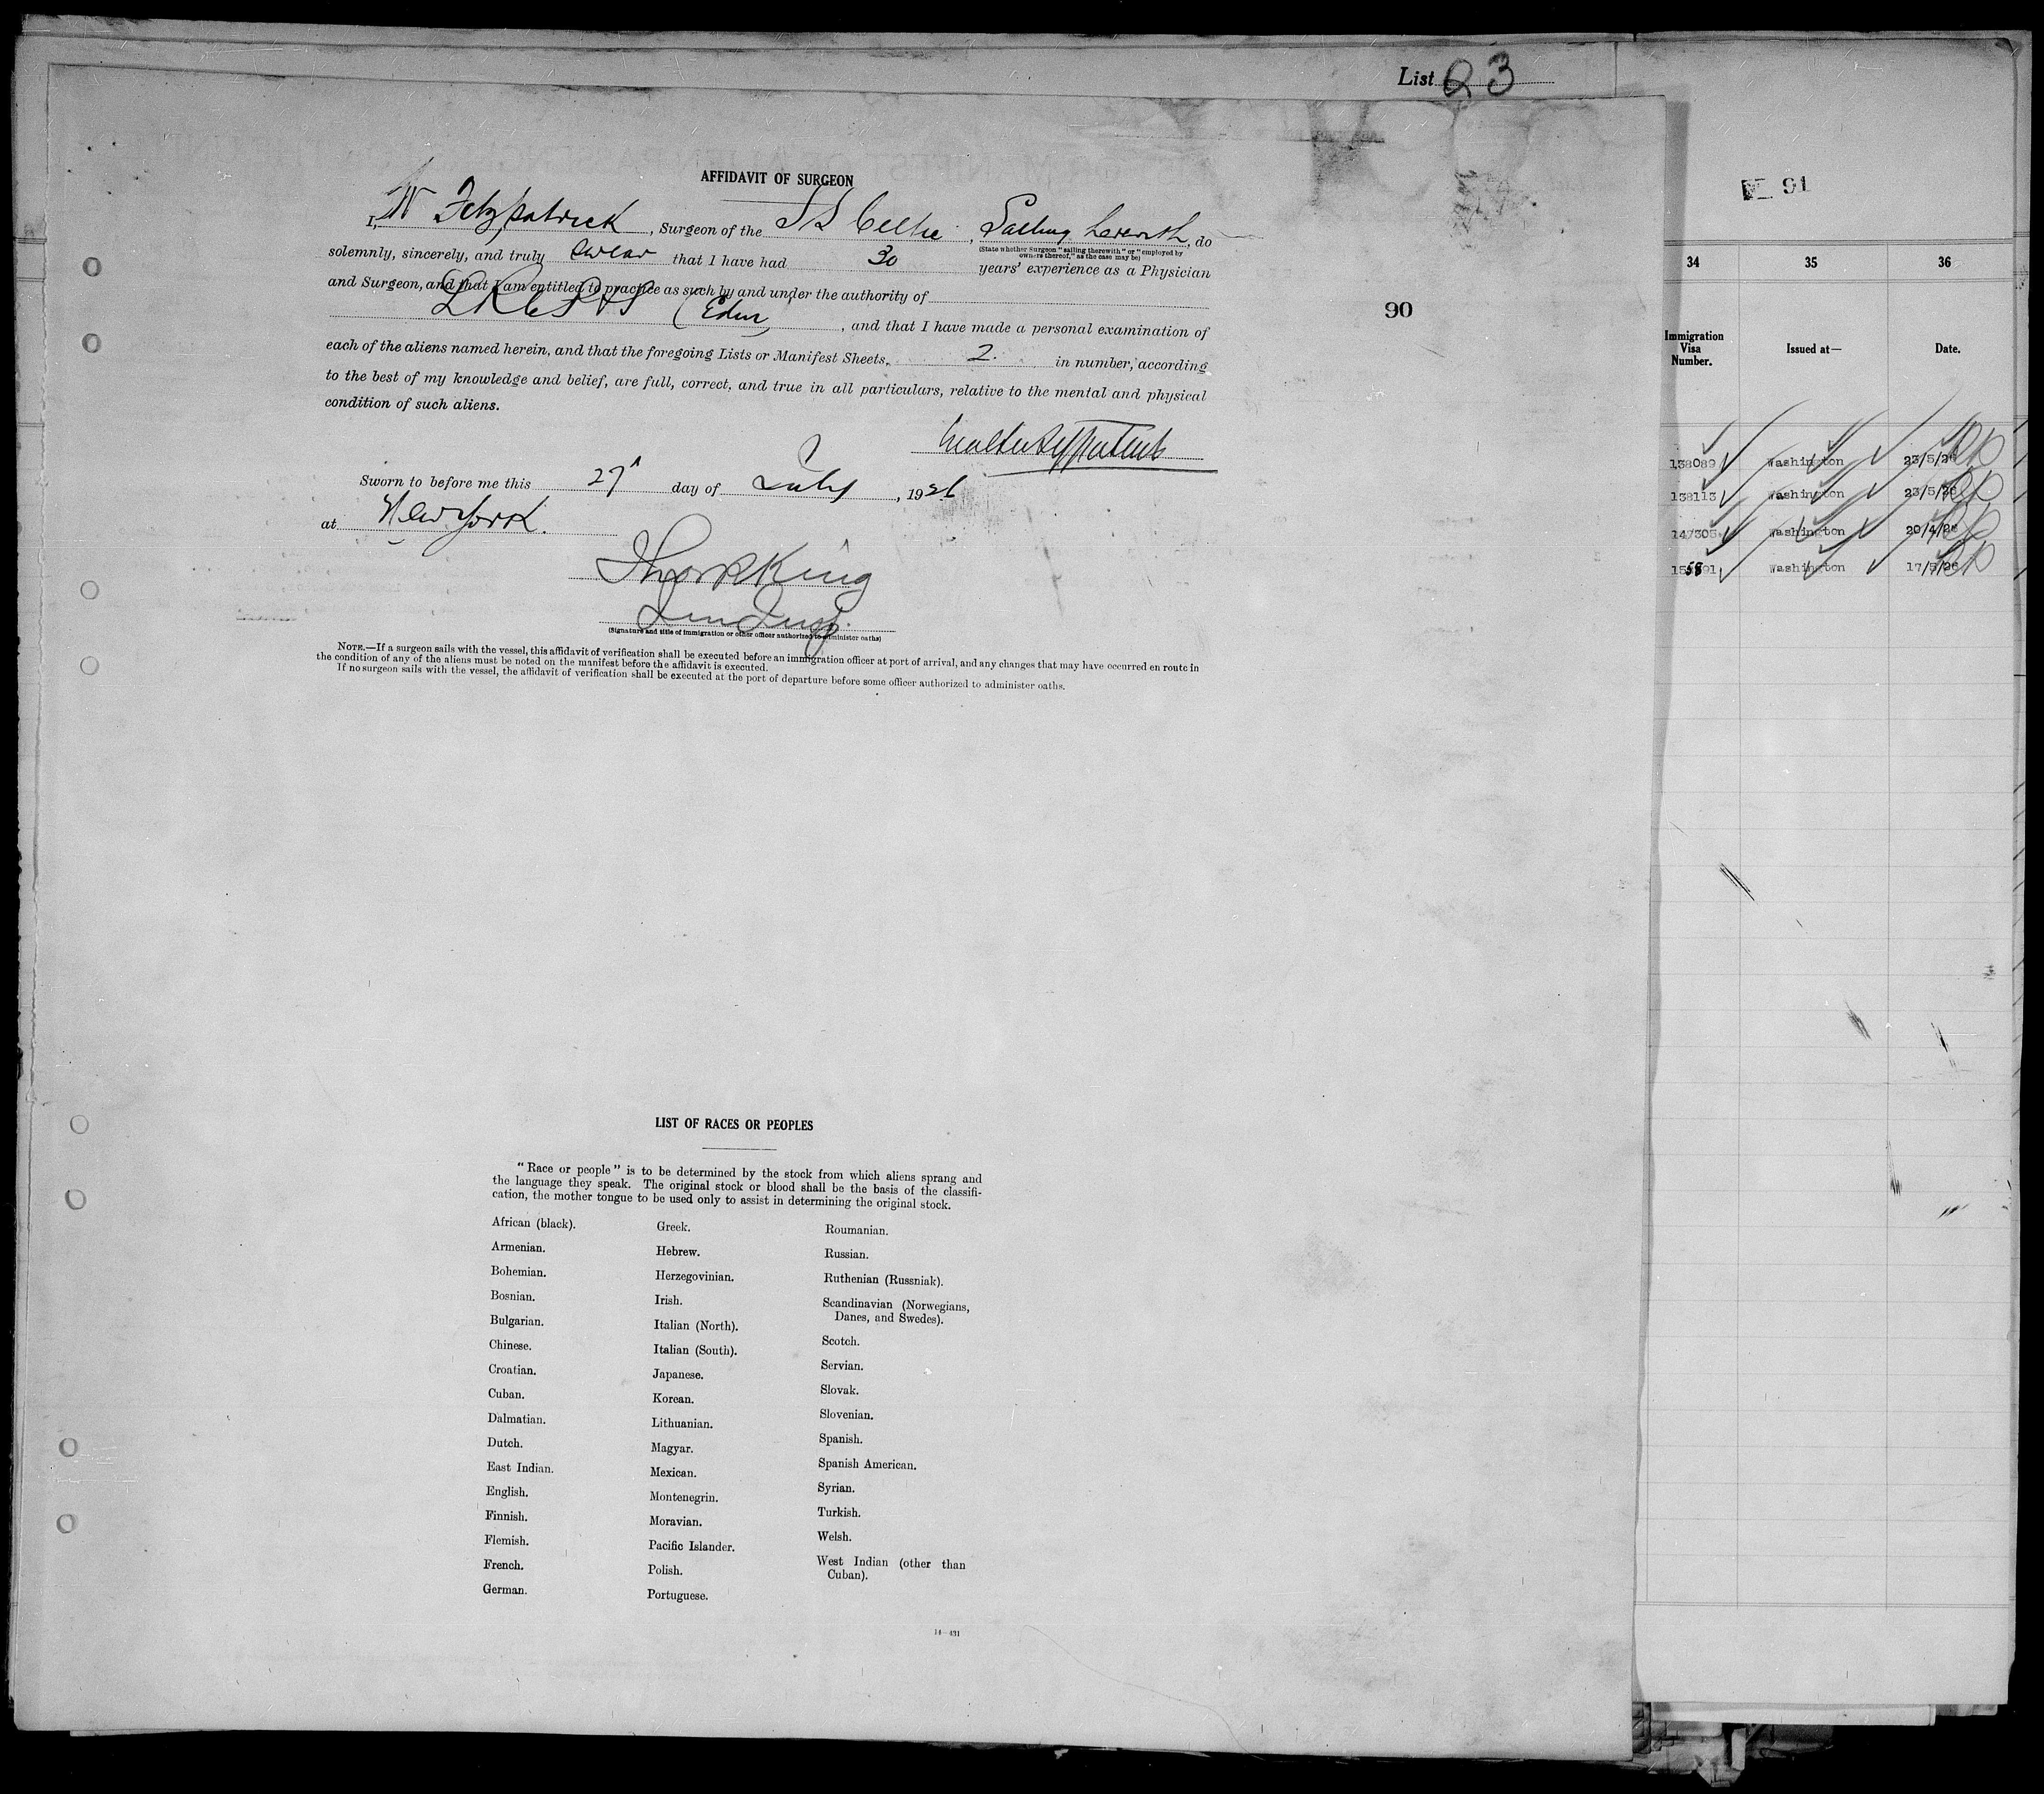 List 23
AFFIDAVIT OF SURGEON
I, W Fitzpatrick, Surgeon of the SS Celtic, Sailing therewith, do
(State whether Surgeon "sailing therewith" or "employed by
owners thereof," as the case may be)
solemnly, sincerely, and truly swear that I have had 30 years' experience as a Physician
and Surgeon, and that I am entitled to practice as such by and under the authority of
LRCP&S (Edin), and that I have made a personal examination of
each of the aliens named herein, and that the foregoing Lists or Manifest Sheets, 2. in number, according
to the best of my knowledge and belief, are full, correct, and true in all particulars, relative to the mental and physical
condition of such aliens.
Walter Fitzpatrick
Sworn to before me this 27 day of July, 1926
at New York.
King
(Signature and title of immigration or other officer authorized to administer oaths)
NOTE.—If a surgeon sails with the vessel, this affidavit of verification shall be executed before an immigration officer at port of arrival, and any changes that may have occurred en route in
the condition of any of the aliens must be noted on the manifest before the affidavit is executed.
If no surgeon sails with the vessel, the affidavit of verification shall be executed at the port of departure before some officer authorized to administer oaths.
90
LIST OF RACES OR PEOPLES
"Race or people" is to be determined by the stock from which aliens sprang and
the language they speak. The original stock or blood shall be the basis of the classifi-
cation, the mother tongue to be used only to assist in determining the original stock.
African (black).
Armenian.
Bohemian.
Bosnian.
Bulgarian.
Chinese.
Croatian.
Cuban.
Dalmatian.
Dutch.
East Indian.
English.
Finnish.
Flemish.
French.
German.
Greek.
Hebrew.
Herzegovinian.
Irish.
Italian (North).
Italian (South).
Japanese.
Korean.
Lithuanian.
Magyar.
Mexican.
Montenegrin.
Moravian.
Pacific Islander.
Polish.
Portuguese.
Roumanian.
Russian.
Ruthenian (Russniak).
Scandinavian (Norwegians,
Danes, and Swedes).
Scotch.
Servian.
Slovak.
Slovenian.
Spanish.
Spanish American.
Syrian.
Turkish.
Welsh.
West Indian (other than
Cuban).
14—431
91
34 35 36
Immigration
Visa
Number.
Issued at—
Date.
138089 Washington 23/5/26
138113 Washington 23/5/26
147305 Washington 20/4/26
Washington 17/5/26